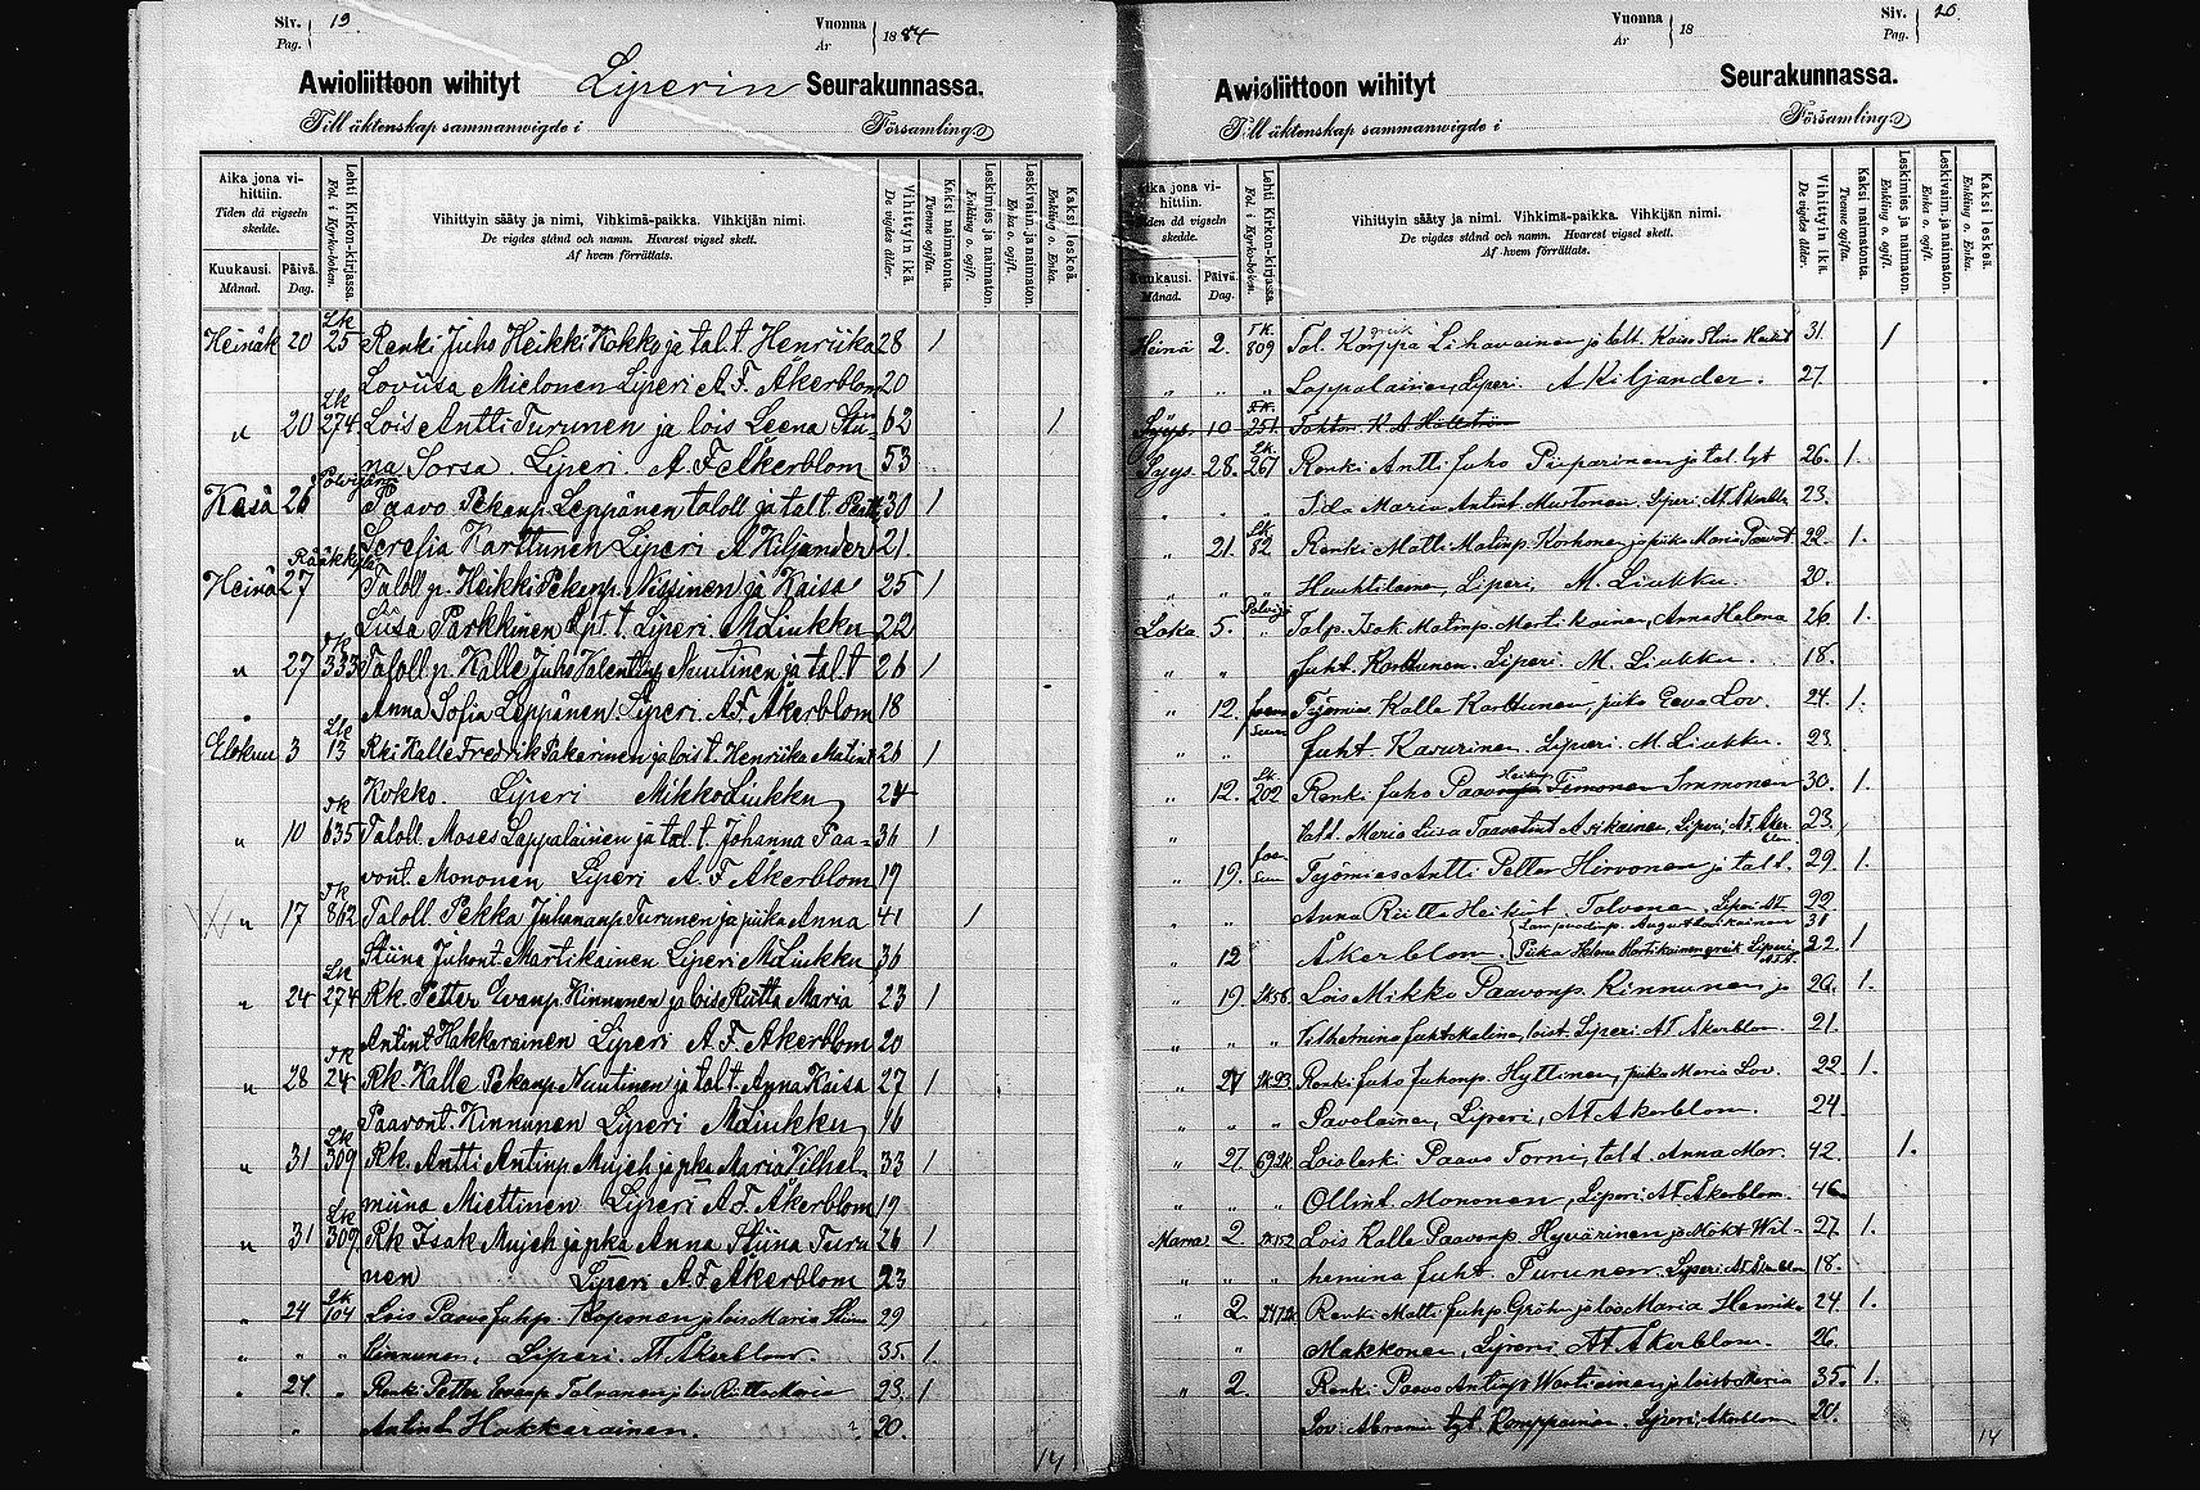 Siv. 19
Pag.
Vuonna
År 1884
Awioliittoon wihityt Liperin Seurakunnassa.
Till äktenskap sammanwigde i Församling.
Aika jona vihittiin.
Tiden då vigseln skedde.
Kuukausi.
Månad.
Päivä.
Dag.
Lehti Kirkon-kirjassa.
Fol. i Kyrko-boken.
Vihittyin sääty ja nimi, Vihkimä-paikka. Vihkijän nimi.
De vigdes stånd och namn. Hvarest vigsel skett.
Af hvem förrättats.
Vihittyin ikä.
De vigdes ålder.
Kaksi naimatonta.
Tvenne ogifta.
Leskimies ja naimaton.
Enkling o. ogift.
Leskivaim. ja naimaton.
Enka o. ogift.
Kaksi leskeä.
Enkling o. Enka.
Heinäk 20 Lk 25 Renki Juho Heikki Kokko ja tal.t. Henriika 28 1
Loviisa Mielonen Liperi A.F. Åkerblom 20
" 20 Lk 274 Lois Antti Turunen ja lois Leena Stii= 62 1
na Sorsa. Liperi. A.F. Åkerblom 53
Kesä 26 Polvijärvi Paavo Pekanp. Leppänen taloll ja tal.t. 30 1
Serefia Karttunen Liperi A Kiljander 21.
Heinä 27 Rääkkylä Taloll p. Heikki Pekanp. Nissinen ja Kaisa 25 1
Liisa Parkkinen Liperi. M Liukku 22
" 27 Tk 333 Taloll.p. Kalle Juho Valentinp Nuutinen ja tal.t 26 1
Anna Sofia Leppänen Liperi. A.F. Åkerblom 18
Elokuu 3 Lk 13 Rki Kalle Fredrik Pakarinen ja lois t. Henriika Matint 26 1
Kokko. Liperi Mikko Liukku 24
" 10 Tk 635 Taloll. Moses Lappalainen ja tal.t. Johanna Paa= 36 1
vont. Mononen Liperi A.F Åkerblom 19
" 17 Tk 862 Taloll. Pekka Juhananp Turunen ja piika Anna 41 1
Stiina Juhont. Martikainen Liperi M Liukku 36
" 24 Lk 274 Rk. Petter Evanp. Kinnunen ja lois Riitta Maria 23 1
Antint Hakkarainen Liperi A.F. Åkerblom 20
" 28 Tk 24 Rk. Kalle Pekanp Nuutinen ja tal.t. Anna Kaisa 27 1
Paavont. Kinnunen Liperi M Liukku 16
" 31 Lk 309 Rk. Antti Antinp. Mujeh ja pka Maria Vilhel= 33 1
miina Miettinen Liperi A.F. Åkerblom 19
" 31 Lk 309 Rk Isak Mujeh ja pka Anna Stiina Turu 26 1
nen Liperi A.F Åkerblom 23
" 24 Lk 104 Lois Paavo Juhp. Koponen ja lois Maria Stiina 29
" " " Kinnunen, Liperi. AF Åkerblom. 35. 1.
" 24. " Renki Petter Evanp Tolvanen ja lois Riitta Maria 23. 1
" Antint Hakkarainen. 20.
14
Siv. 20.
Pag.
Vuonna
År 18
Awioliittoon wihityt Seurakunnassa.
Till äktenskap sammanwigde i Församling.
Aika jona vihittiin.
Tiden då vigseln skedde.
Kuukausi.
Månad.
Päivä.
Dag.
Lehti Kirkon-kirjassa.
Fol. i Kyrko-boken.
Vihittyin sääty ja nimi. Vihkimä-paikka. Vihkijän nimi.
De vigdes stånd och namn. Hvarest vigsel skett.
Af hvem förrättats.
Vihittyin ikä.
De vigdes ålder.
Kaksi naimatonta.
Tvenne ogifta.
Leskimies ja naimaton.
Enkling o. ogift.
Leskivaim. ja naimaton.
Enka o. ogift.
Kaksi leskeä.
Enkling o. Enka.
Heinä 2. TK. 809 Tal. Korppa greik Lihavainen ja talt. Kaisa Stina 31. 1
" " " Lappalainen, Liperi. A Kiljander. 27.
Syys. 10 TK. 251. Tohtori K. A Hällström
Syys. 28. Lk. 267 Renki Antti Juho Piiparinen ja tal. tyt 26. 1.
" " " Ida Maria Antint. Mustonen. Liperi. AF. Åkerblm 23.
" 21. Lk 82 Renki Matti Matinp. Korhonen ja piika Maria Paavot 22. 1.
" " " Huuhtilainen, Liperi, M. Liukku. 20.
Loka 5. Polvijä " Talp. Isak Matinp. Martikainen, Anna Helena 26. 1.
" " Juht. Karttunen. Liperi. M. Liukku. 18.
" 12. Joensuu Työmies Kalle Karttunen, piika Eeva Lov. 24. 1.
" " Juht. Kasurinen. Liperi. M. Liukku. 23.
" 12. Lk. 202 Renki Juho Paavonp Heikinp Timonen Immonen 30. 1.
" tal t. Maria Liisa Taavetint Asikainen, Liperi, AF. Åkerblom 23.
" 19. Joensuu Työmies Antti Petter Hirvonen ja tal t. 29. 1.
" " Anna Riitta Heikint. Tolvanen, Liperi AF 22.
Åkerblom.
" 12 Lampuodinp. August Laukkanen 31
Piika Helena Martikainen greik Liperi A.F.Å. 22. 1
" 19. Lk 56. Lois Mikko Paavonp. Kinnunen ja 20. 1.
" " " Vilhelmina Juht Malinen, loist. Liperi. AF Åkerblom. 21.
" 27 Lk 23. Renki Juho Juhonp. Hyttinen, piika Maria Lov. 22. 1.
" " " Pavolainen, Liperi, AF Åkerblom. 24.
" 27. 69 Lk. Loisleski Paavo Torni, tal t. Anna Mar. 42. 1.
" " " Ollint. Mononen, Liperi. AF Åkerblom. 46
Marra 2. Lk 152 Lois Kalle Paavonp. Hyvärinen ja Mökt Wil- 27. 1.
" " " hemina Juht. Turunen. Liperi. AF Åkerblom 18.
" 2. 247 Lk Renki Matti Juhp. Gröhn ja lois Maria Henrika 24. 1.
" Makkonen, Liperi, AF Åkerblom. 26.
" 2. Renki Paavo Antinp Wartiainen ja loist Maria 35. 1.
Lov. Abramin tyt. Komppainen. Liperi, Åkerblom 20.
14